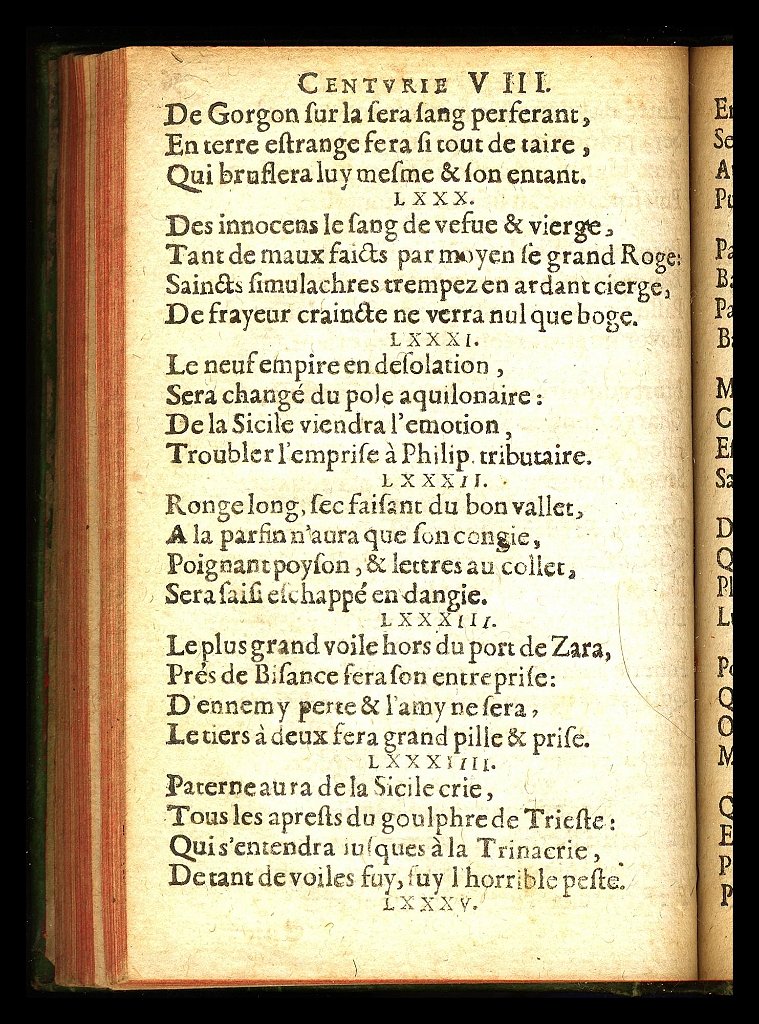 CENTVRIE VIII.
De Gorgon ſur la ſera ſang perferant,
En terre eſtrange fera ſi tout de taire,
Qui bruſlera luy meſme & ſon entant.
LXXX.
Des innocens le ſang de vefue & vierge,
Tant de maux faicts par moyen ſe grand Roge:
Saincts ſimulachres trempez en ardant cierge,
De frayeur craincte ne verra nul que boge.
LXXXI.
Le neuf empire en deſolation,
Sera changé du pole aquilonaire:
De la Sicile viendra l'emotion,
Troubler l'empriſe à Philip. tributaire.
LXXXII.
Ronge long, ſec faiſant du bon vallet,
A la parfin n'aura que ſon congie,
Poignant poyſon, & lettres au collet,
Sera ſaiſi eſchappé en dangie.
LXXXIII.
Le plus grand voile hors du port de Zara,
Prés de Biſance fera ſon entrepriſe:
D'ennemy perte & l'amy ne ſera,
Le tiers à deux fera grand pille & priſe.
LXXXIIII.
Paterne aura de la Sicile crie,
Tous les apreſts du goulphre de Trieſte:
Qui s'entendra iuſques à la Trinacrie,
De tant de voiles fuy, fuy l'horrible peſte.
LXXXV.